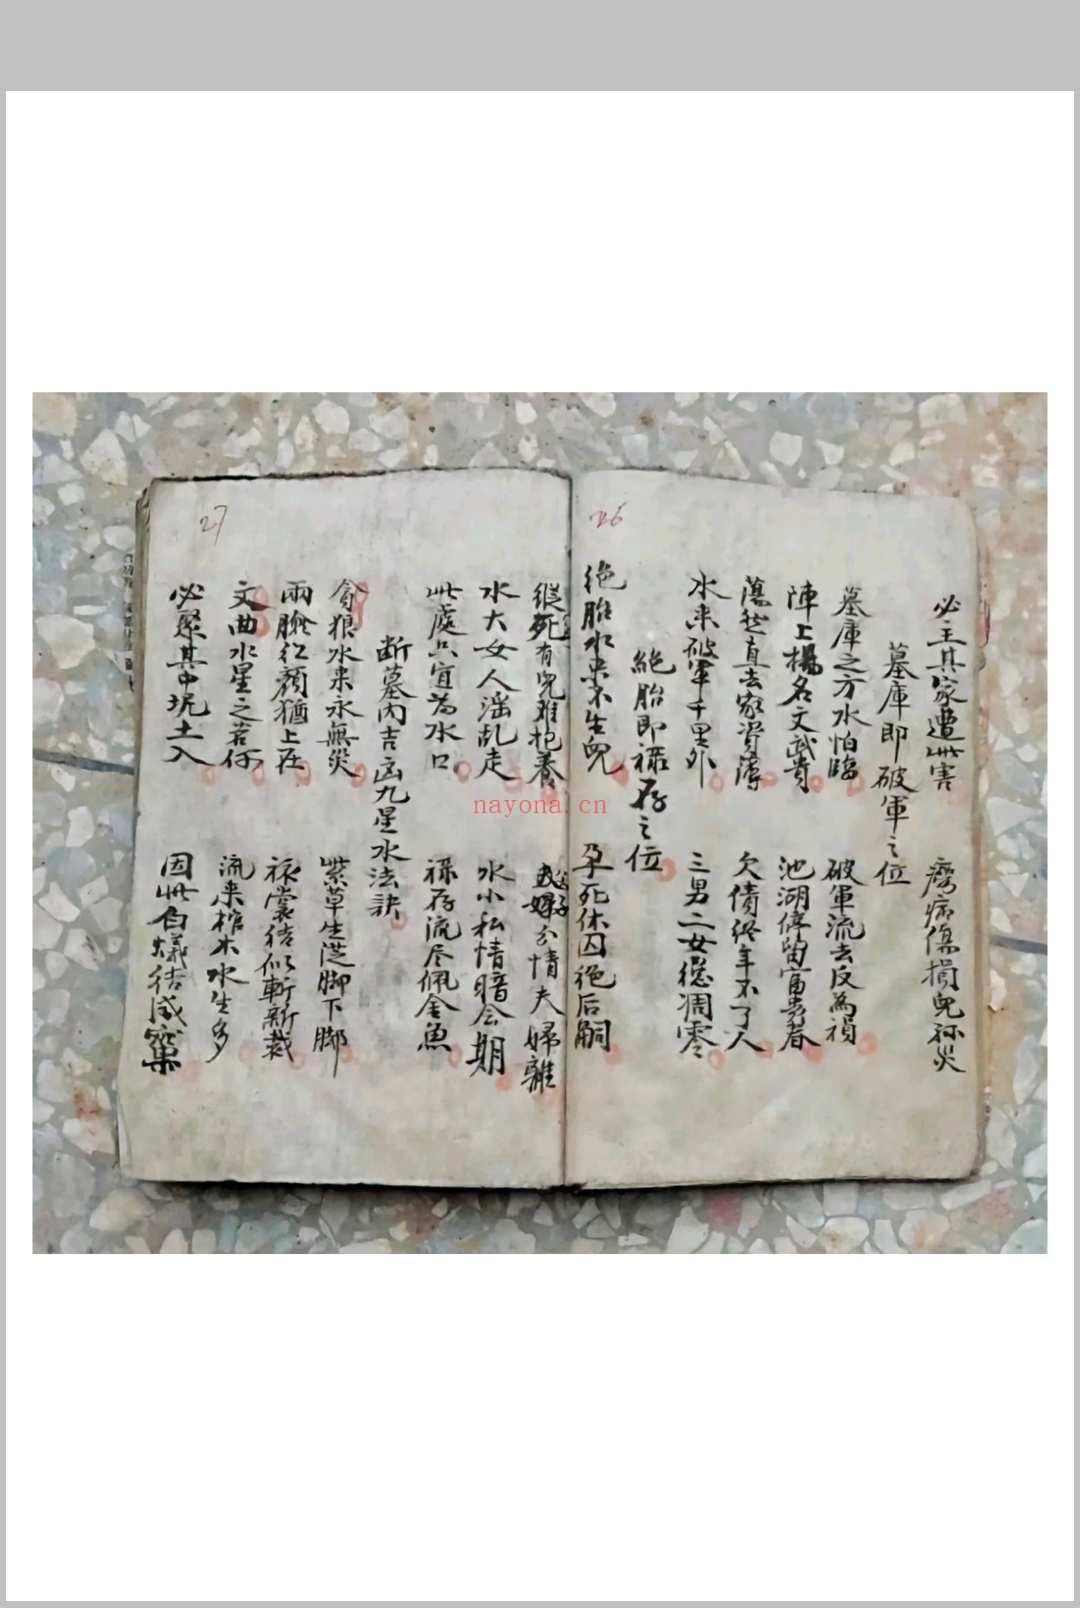 26
必主其家遭此害 癆病傷損兒孫災
墓庫即破軍之位
墓庫之方水怕臨 破軍流去反為禍
陣上揚名文武貴 池湖停留富貴春
蕩然直去家資薄 欠債終年不了人
水来破軍千里外 三男二女總凋零
絕胎即祿存之位
绝胎水来不生兒 孕死休囚绝后嗣
27
縱死有兒难抱養 父子分情夫婦離
水大女人淫乱走 水小私情暗会期
此處只宜为水口 禄存流尽佩金魚
断墓内吉凶九星水法訣
貪狼水来永無災 紫草生茫脚下脚
兩臉红顏猶上在 衣裳結似斬新裁
文曲水星之若何 流来棺木水生多
必聚其中坭土入 因此白蟻结成窠
nayona.cn